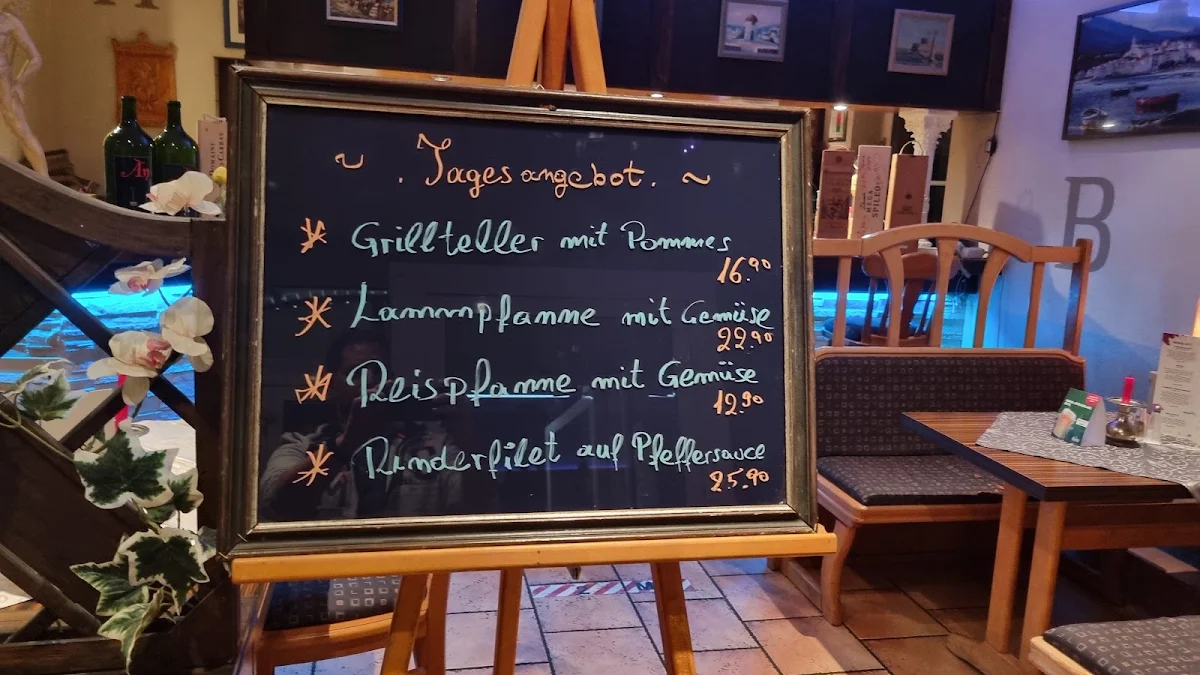 ~ . Tagesangebot. ~
* Grillteller mit Pommes
16.90
* Lammpfanne mit Gemüse
22.90
* Reispfanne mit Gemüse
12.90
* Rinderfilet auf Pfeffersauce
25.90
B
MEGA
SPILEO